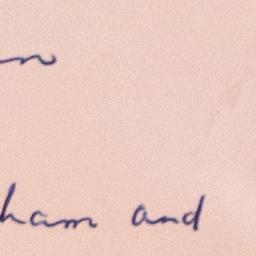 n
ham and